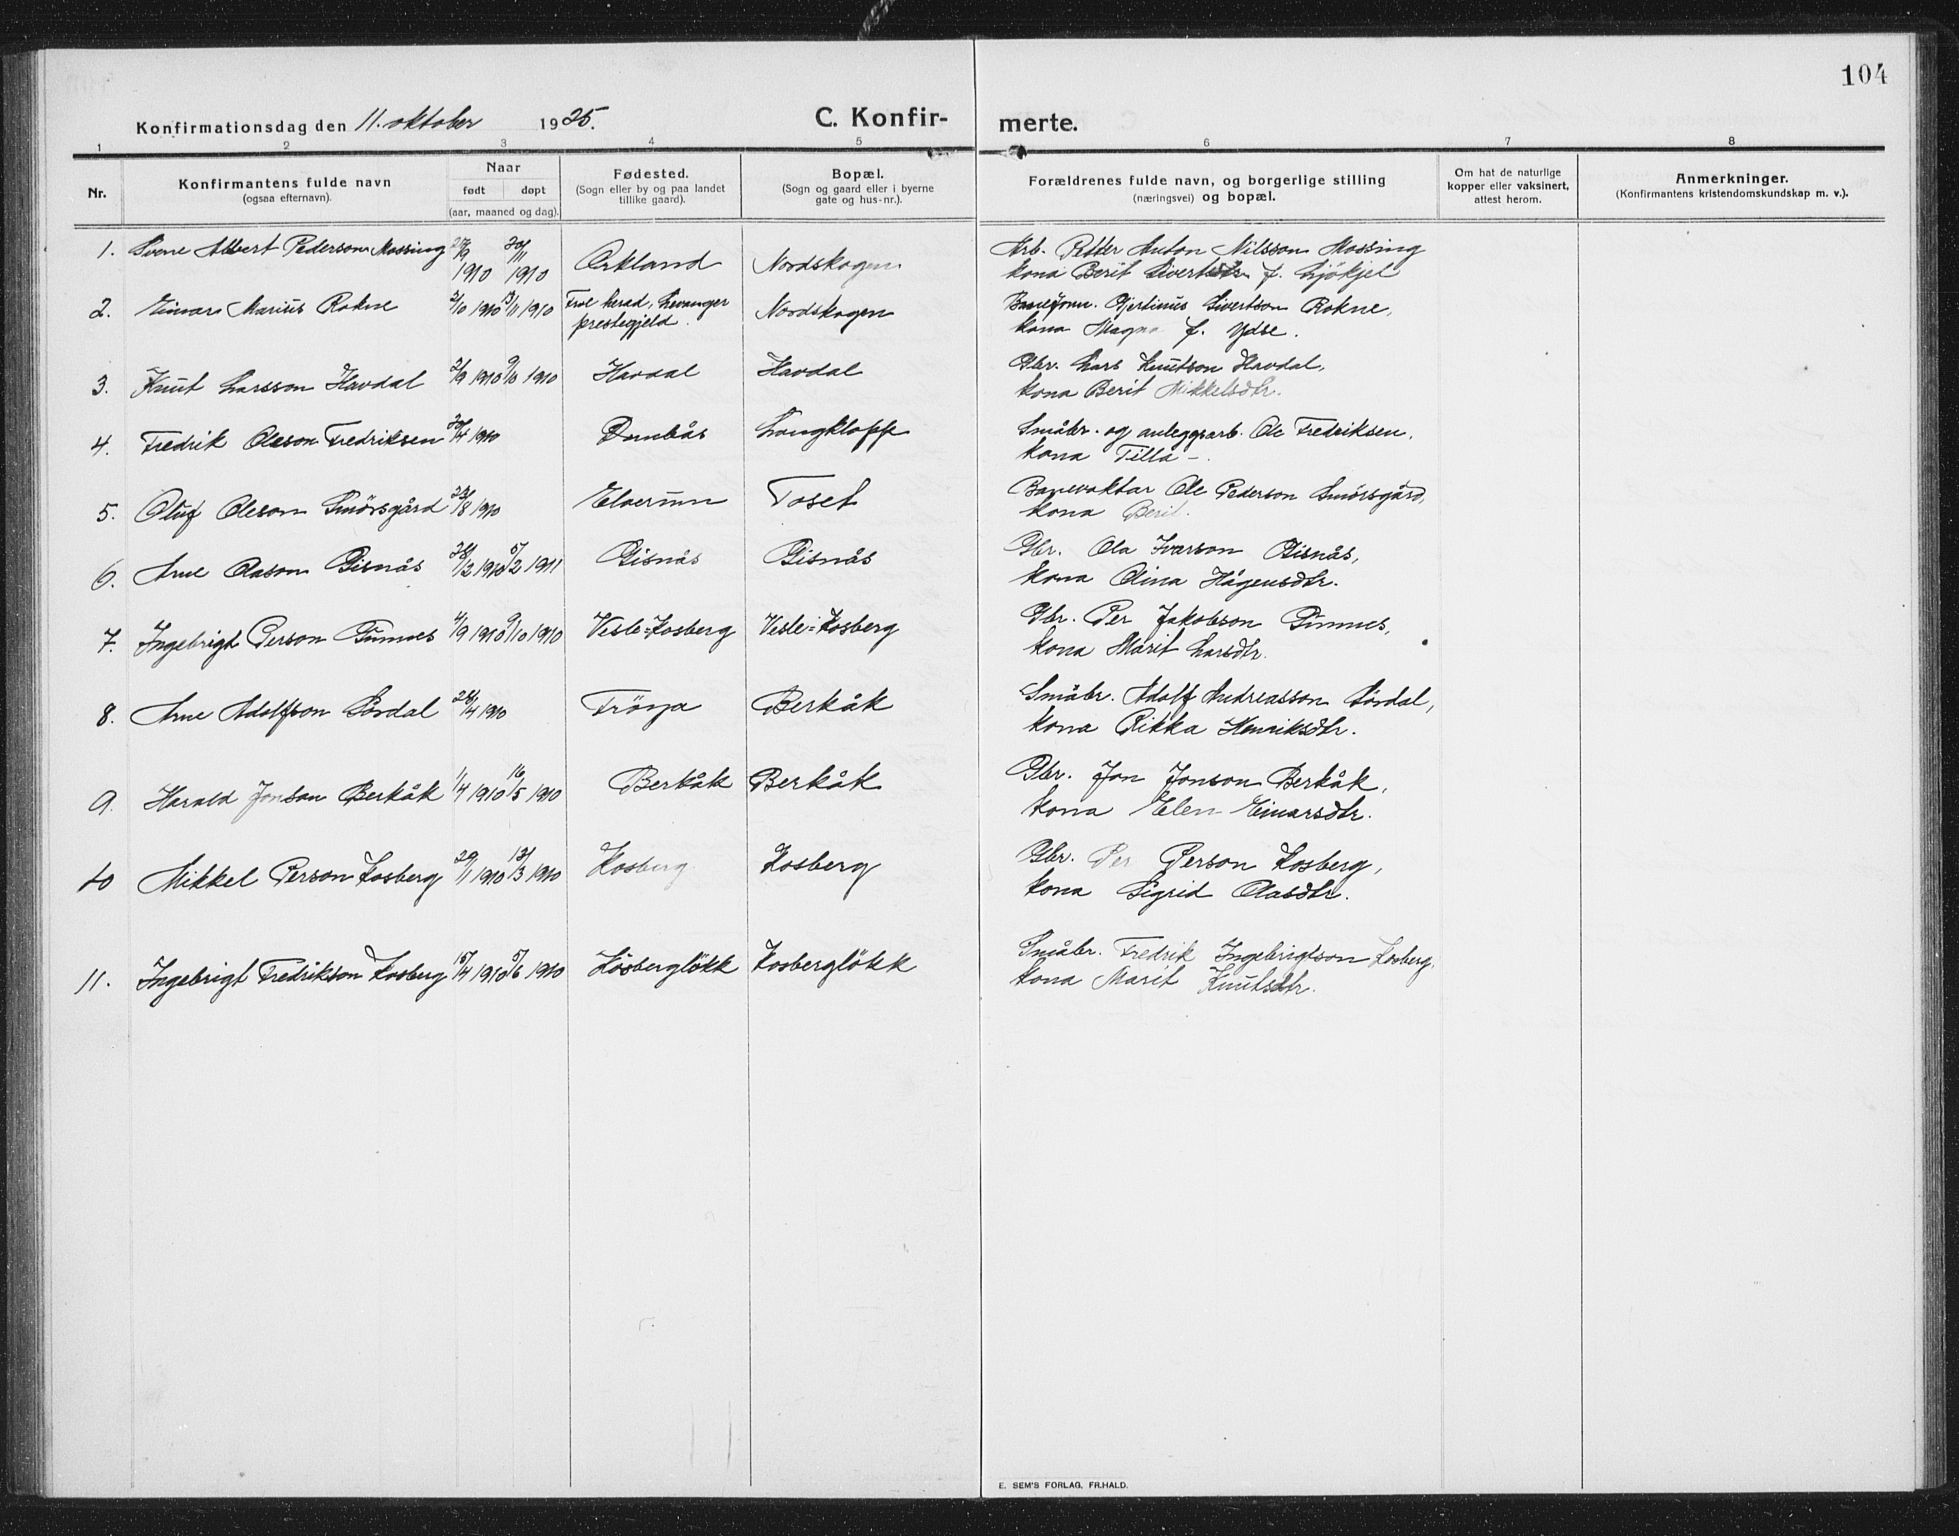 104
Konfirmationsdag den 11. oktober 1925. C. Konfir- merte.
1 2 3 4 5 6 7 8
Nr. Konfirmantens fulde navn (ogsaa efternavn). Naar født døpt (aar, maaned og dag). Fødested. (Sogn eller by og paa landet tillike gaard). Bopæl. (Sogn og gaard eller i byerne gate og hus-nr.). Forældrenes fulde navn, og borgerlige stilling (næringsvei) og bopæl. Om hat de naturlige kopper eller vaksinert, attest herom. Anmerkninger. (Konfirmantens kristendomskundskap m. v.).
1. Albert Pederson Mossing 1910 20/11 1910 Orkland Nordskogen Arb. Petter Anton Nilsson Mossing
kona Berit f.
2. Einar Marius Rokne 2/10 1910 13/11 1910 herad, Levanger prestegjeld. Nordskogen Sivertson Rokne,
kona Magna f. Ydse.
3. Knut Larsson Havdal 2/9 1910 9/10 1910 Havdal Havdal Gbr. Lars Knutson Havdal,
kona Berit Mikkelsdtr.
4. Fredrik Oleson Fredriksen 20/4 1910 Dombås Langklopp Småbr. og anleggsarb. Ole Fredriksen,
kona Tilla –.
5. Oluf Oleson Smörsgård 23/8 1910 Elverum Toset Banevaktar Ole Pederson Smörsgård,
kona Berit.
6. Arne Olason Gisnås 28/12 1910 5/2 1911 Gisnås Gisnås Gbr. Ola Ivarson Gisnås,
kona Olina Hågensdtr.
7. Ingebrigt Person Gunnes 4/9 1910 9/10 1910 Vesle=Kosberg Vesle=Kosberg Gbr. Per Jakobson Gunnes,
kona Marit Larsdtr.
8. Arne Adolfson Sördal 24/4 1910 Fröya Berkåk Småbr. Adolf Andreasson Sördal,
kona Rikka Henriksdtr.
9. Harald Jonson Berkåk 1/4 1910 16/5 1910 Berkåk Berkåk Gbr. Jon Jonson Berkåk,
kona Elen Einarsdtr.
10 Mikkel Person Kosberg 29/1 1910 13/3 1910 Kosberg Kosberg Gbr. Per Person Kosberg,
kona Sigrid Olasdtr.
11. Ingebrigt Fredrikson Kosberg 15/4 1910 5/6 1910 Kosberglökk Kosberglökk Småbr. Fredrik Ingebrigtson Kosberg,
kona Marit Knutsdtr.
E. SEM'S FORLAG, FR.HALD.